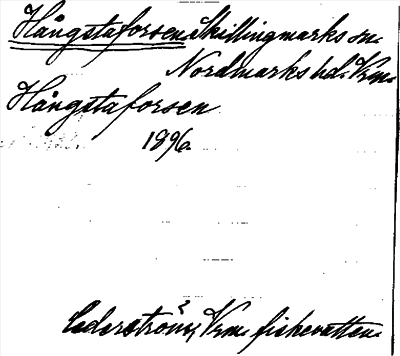 Hångstaforsen Skillingmarks sn.
Nordmarks hd. Vrm.
Hångstaforsen
1896.
Cederström, Vrm. fiskevatten.